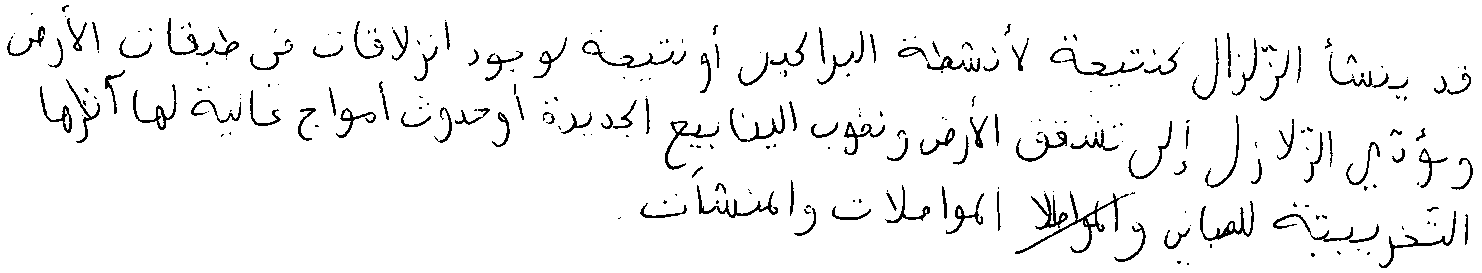 قد ينشأ الزلزال كنتيجة لأنشطة البراكين أو نتيجة لوجود انزلاقات في طبقات الأرض
ويؤدي الزلازل إلى تشقق الأرض ونضوب الينابيع الجديدة أو حدوث أمواج عالية لها آثارها
التخريبية للمباني والمواصلا المواصلات والمنشآت.